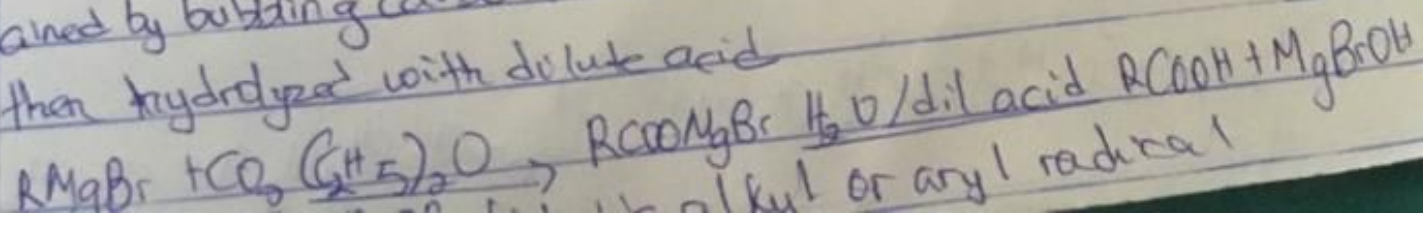 ained by bubbling
then hydrolyzed with dilute acid
RMgBr +CO2 (C2H5)2O → RCOOMgBr H2O/dil acid RCOOH + MgBrOH
alkyl or aryl radical